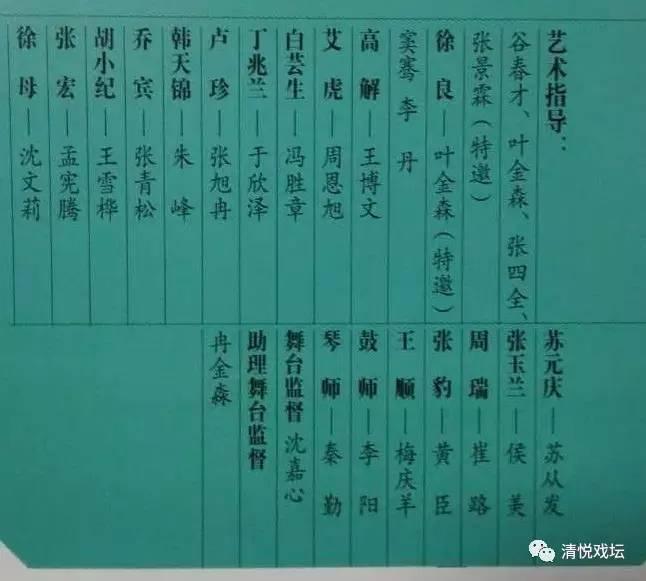 艺术指导：
谷春才、叶金森、张四全、
张景霖（特邀）
徐良——叶金森（特邀）
窦骞 李丹
高解——王博文
艾虎——周恩旭
白芸生——冯胜章
丁兆兰——于欣泽
卢珍——张旭冉
韩天锦——朱峰
乔宾——张青松
胡小纪——王雪桦
张宏——孟宪腾
徐母——沈文莉
苏元庆——苏从发
张玉兰——侯美
周瑞——崔路
张豹——黄臣
王顺——梅庆羊
鼓师——李阳
琴师——秦勤
舞台监督 沈嘉心
助理舞台监督
冉金森
清悦戏坛